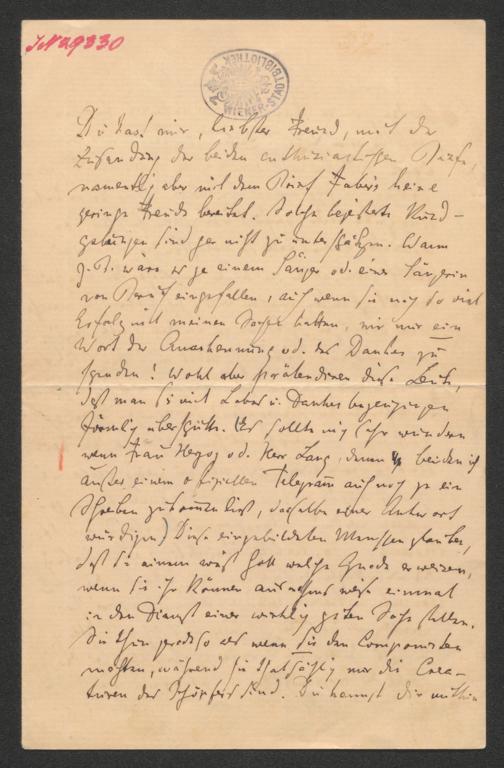 INo 29830
WIENER STADTBIBLIOTHEK
Du hast mir, liebster Freund, mit der
Zusendung der beiden enthusiastischen Briefe,
namentlich aber mit dem Brief Fabers keine
geringe Freude bereitet. Solche begeisterte Kund-
gebungen sind gar nicht zu unterschätzen. Wann
z. B. wäre es je einem Sänger od. einer Sängerin
von Beruf eingefallen, auch wenn sie noch so viel
Erfolg mit meinen Sachen hatten, mir nur ein
Wort der Anerkennung od. des Dankes zu
spenden! Wohl aber prätendiren diese Leute,
daß man sie mit Lobes u. Dankesbezeugungen
förmlich überschütte. Es sollte mich sehr wundern
wenn Frau Herzog od. Herr Lang, denen beiden ich
außer einem offiziellen Telegram auch noch je ein
Schreiben zukommen ließ, dasselbe einer Antwort
würdigen) Diese eingebildeten Menschen glauben,
daß sie einem weiß Gott welche Gnade erweisen,
wenn sie ihr Können ausnahmsweise einmal
in den Dienst einer wirklich guten Sache stellen.
Sie thun geradeso als wenn sie den Componisten
machten, während sie thatsächlich nur die Crea-
turen des Schöpfers sind. Du kannst dir mithin